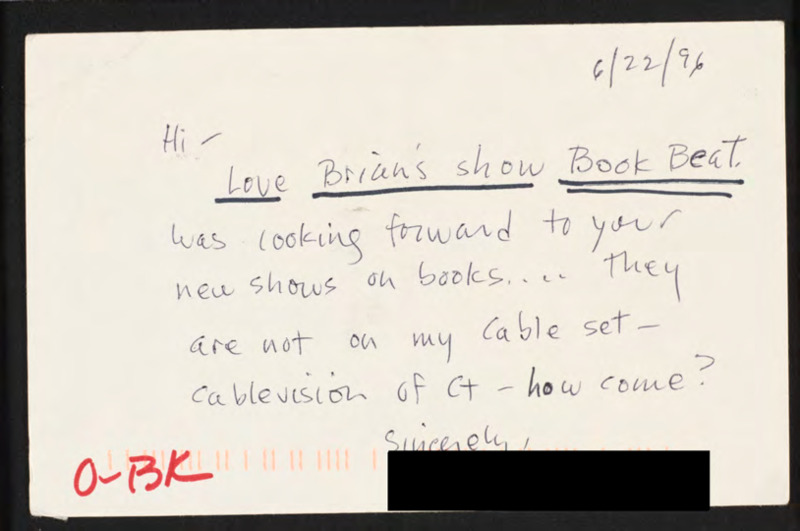 6/22/96
Hi -
Love Brian's show Book Beat.
was looking forward to your
new shows on books.... they
are not on my cable set -
cablevision of Ct - how come?
Sincerely,
O-BK